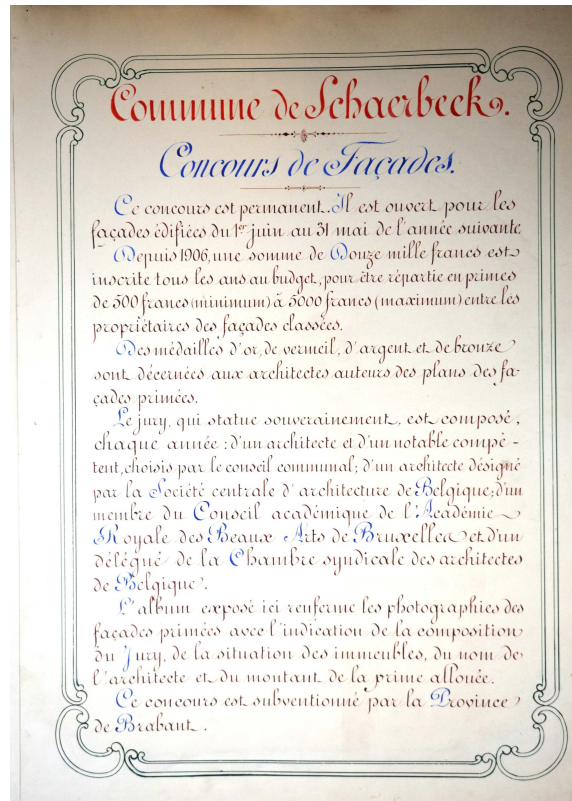 Commune de Schaerbeek.
Concours de Façades.
Ce concours est permanent. Il est ouvert pour les
façades édifiées du 1er juin au 31 mai de l'année suivante
Depuis 1906, une somme de Douze mille francs est
inscrite tous les ans au budget, pour être répartie en primes
de 500 francs (minimum) à 5000 francs (maximum) entre les
propriétaires des façades classées.
Des médailles d'or, de vermeil, d'argent et de bronze
sont décernées aux architectes auteurs des plans des fa-
çades primées.
Le jury, qui statue souverainement, est composé,
chaque année : d'un architecte et d'un notable compé-
tent, choisis par le conseil communal; d'un architecte désigné
par la Société centrale d'architecture de Belgique; d'un
membre du Conseil académique de l'Académie
Royale des Beaux Arts de Bruxelles et d'un
délégué de la Chambre syndicale des architectes
de Belgique.
L'album exposé ici renferme les photographies des
façades primées avec l'indication de la composition
du Jury, de la situation des immeubles, du nom de
l'architecte et du montant de la prime allouée.
Ce concours est subventionné par la Province
de Brabant.